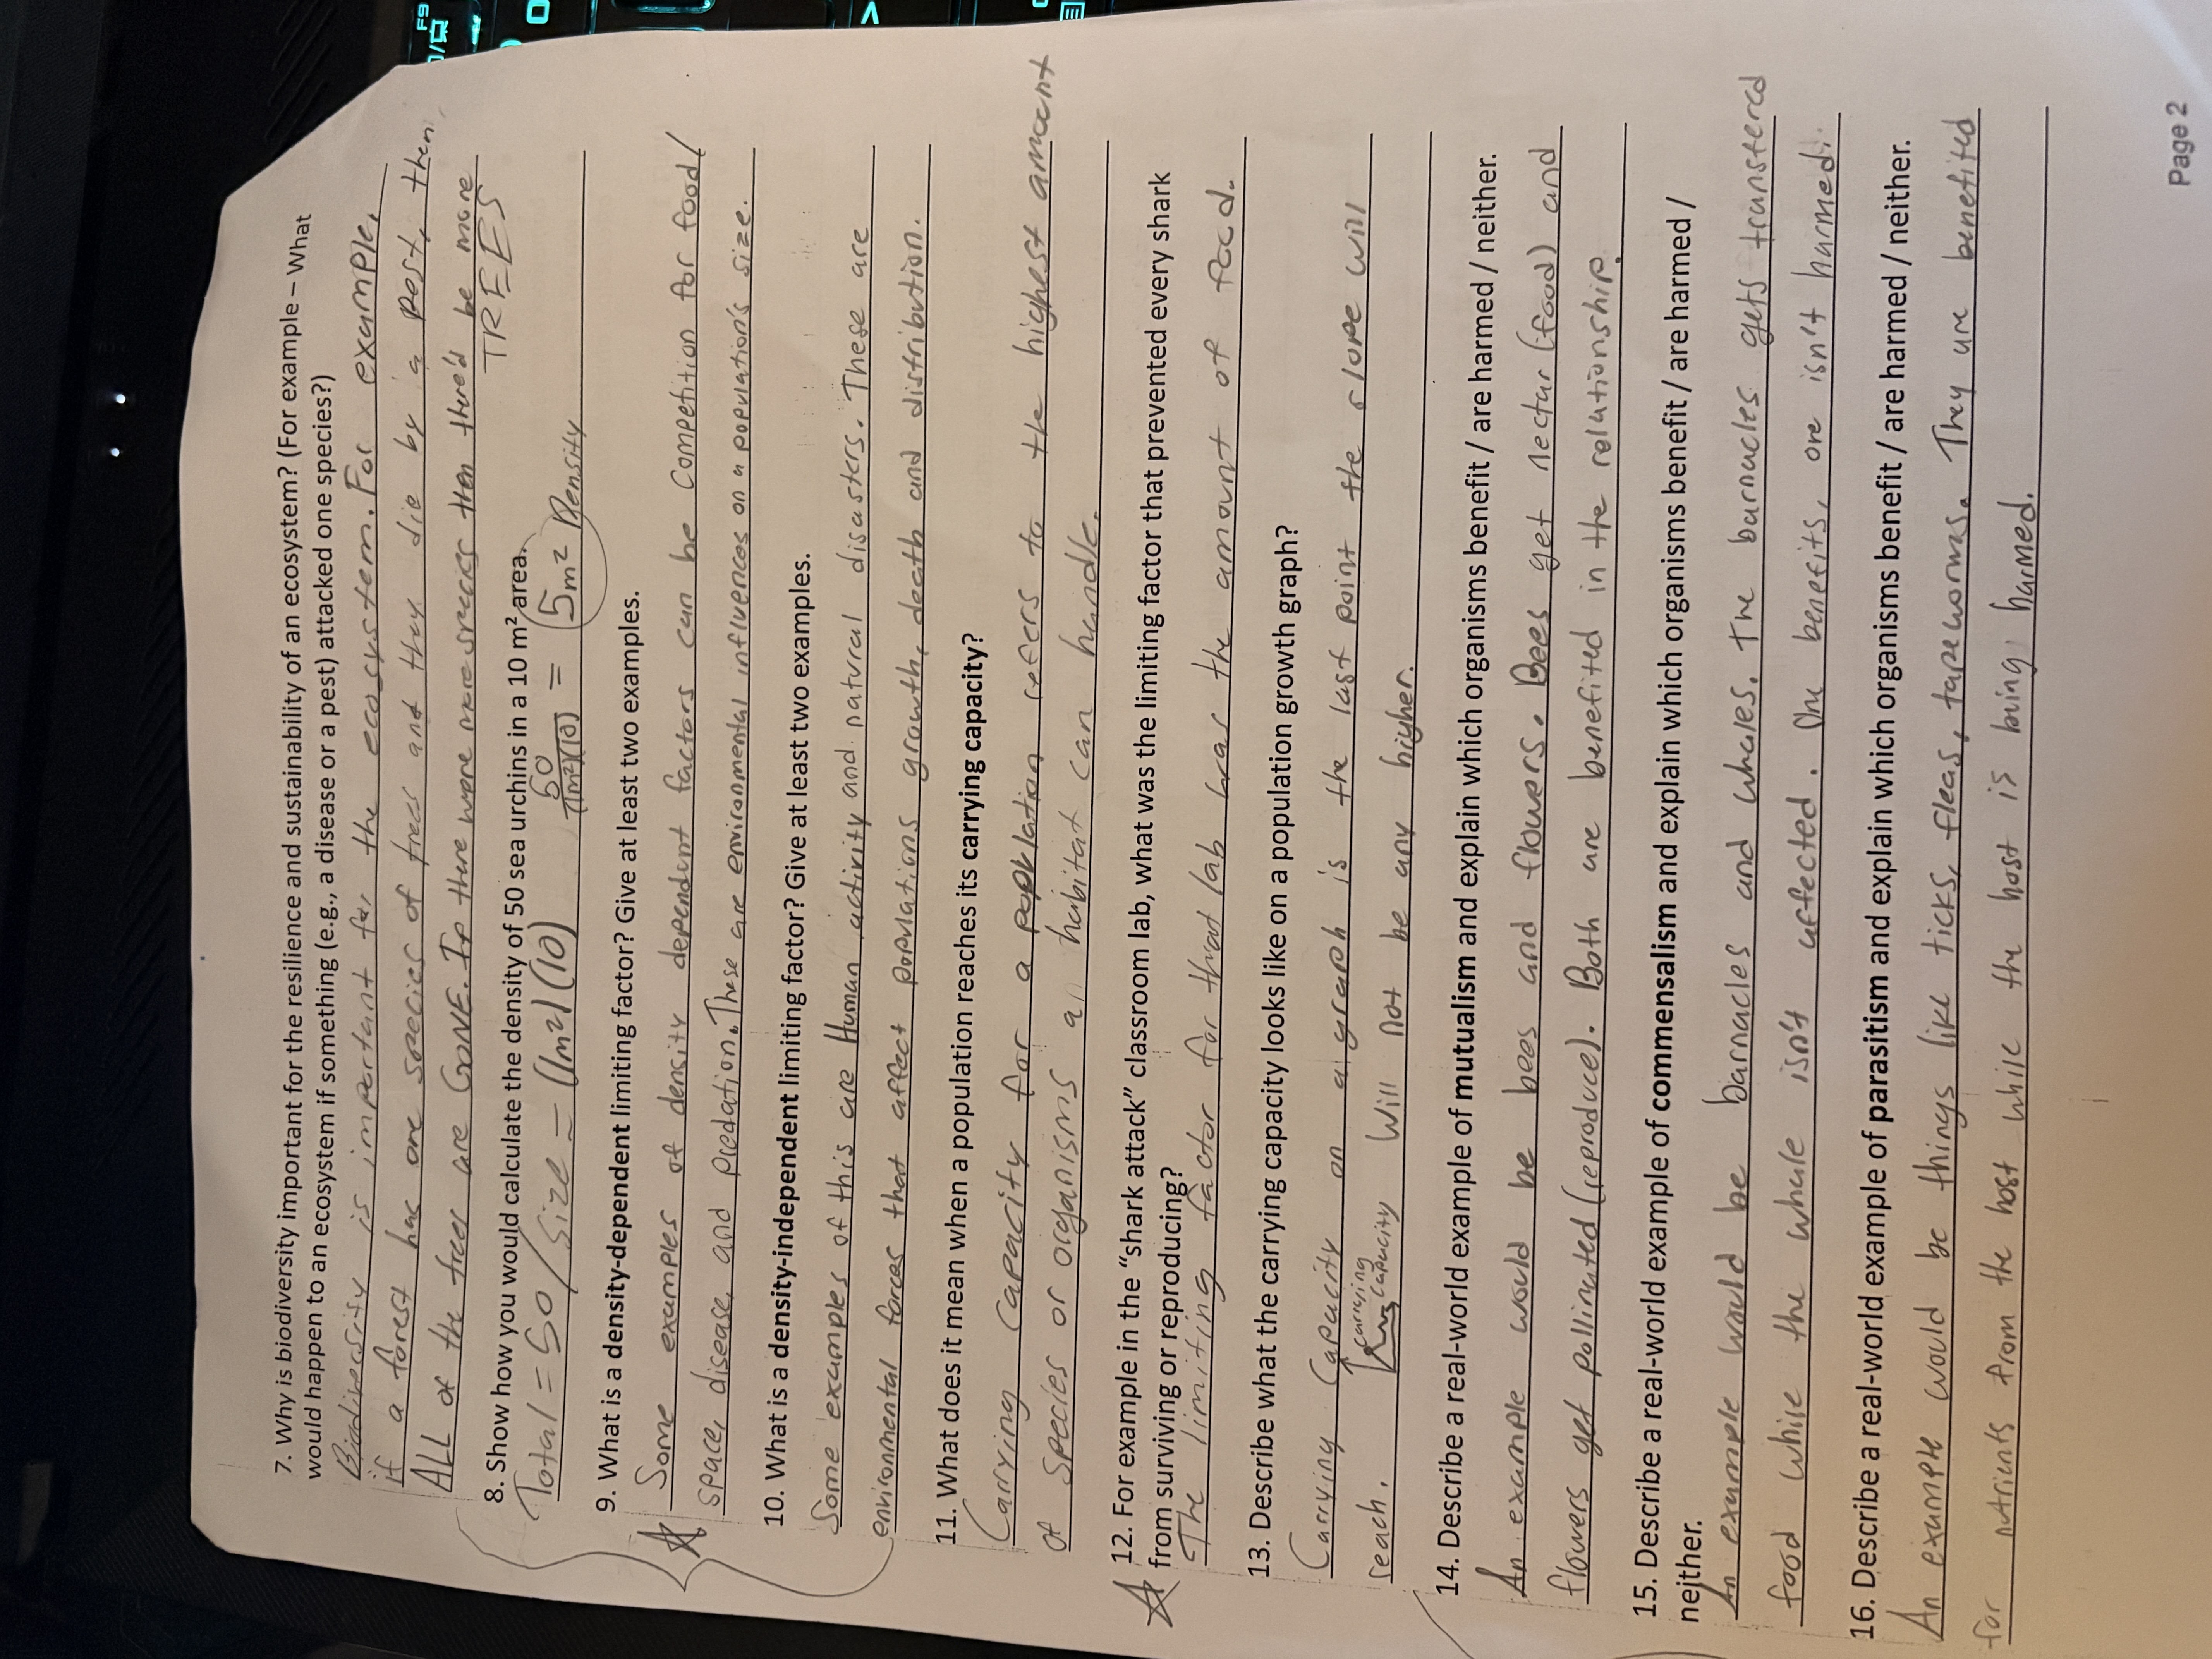 7. Why is biodiversity important for the resilience and sustainability of an ecosystem? (For example – What
would happen to an ecosystem if something (e.g., a disease or a pest) attacked one species?)
Biodiversity is important for the ecosystem. For example,
if a forest has one species of trees and they die by a pest, then
ALL of the trees are GONE. If there were more species then there'd be more
TREES
8. Show how you would calculate the density of 50 sea urchins in a 10 m² area.
Total = 50 / Size = (1m²)(10) 50 / (1m²)(10) = 5m² Density
9. What is a density-dependent limiting factor? Give at least two examples.
Some examples of density dependent factors can be competition for food/
space, disease, and predation. These are environmental influences on a population's size.
10. What is a density-independent limiting factor? Give at least two examples.
Some examples of this are Human activity and natural disasters. These are
environmental forces that affect populations growth, death and distribution.
11. What does it mean when a population reaches its carrying capacity?
Carrying Capacity for a population refers to the highest amount
of species or organisms a habitat can handle.
12. For example in the "shark attack" classroom lab, what was the limiting factor that prevented every shark
from surviving or reproducing?
The limiting factor for that lab was the amount of food.
13. Describe what the carrying capacity looks like on a population growth graph?
Carrying Capacity on a graph is the last point the slope will
reach. carrying capacity Will not be any higher.
14. Describe a real-world example of mutualism and explain which organisms benefit / are harmed / neither.
An example would be bees and flowers. Bees get nectar (food) and
flowers get pollinated (reproduce). Both are benefited in the relationship.
15. Describe a real-world example of commensalism and explain which organisms benefit / are harmed /
neither.
An example would be barnacles and whales. The barnacles gets transfered
food while the whale isn't affected. One benefits, one isn't harmed.
16. Describe a real-world example of parasitism and explain which organisms benefit / are harmed / neither.
An example would be things like ticks, fleas, tapeworms. They are benefited
for nutrients from the host while the host is being harmed.
Page 2
F9